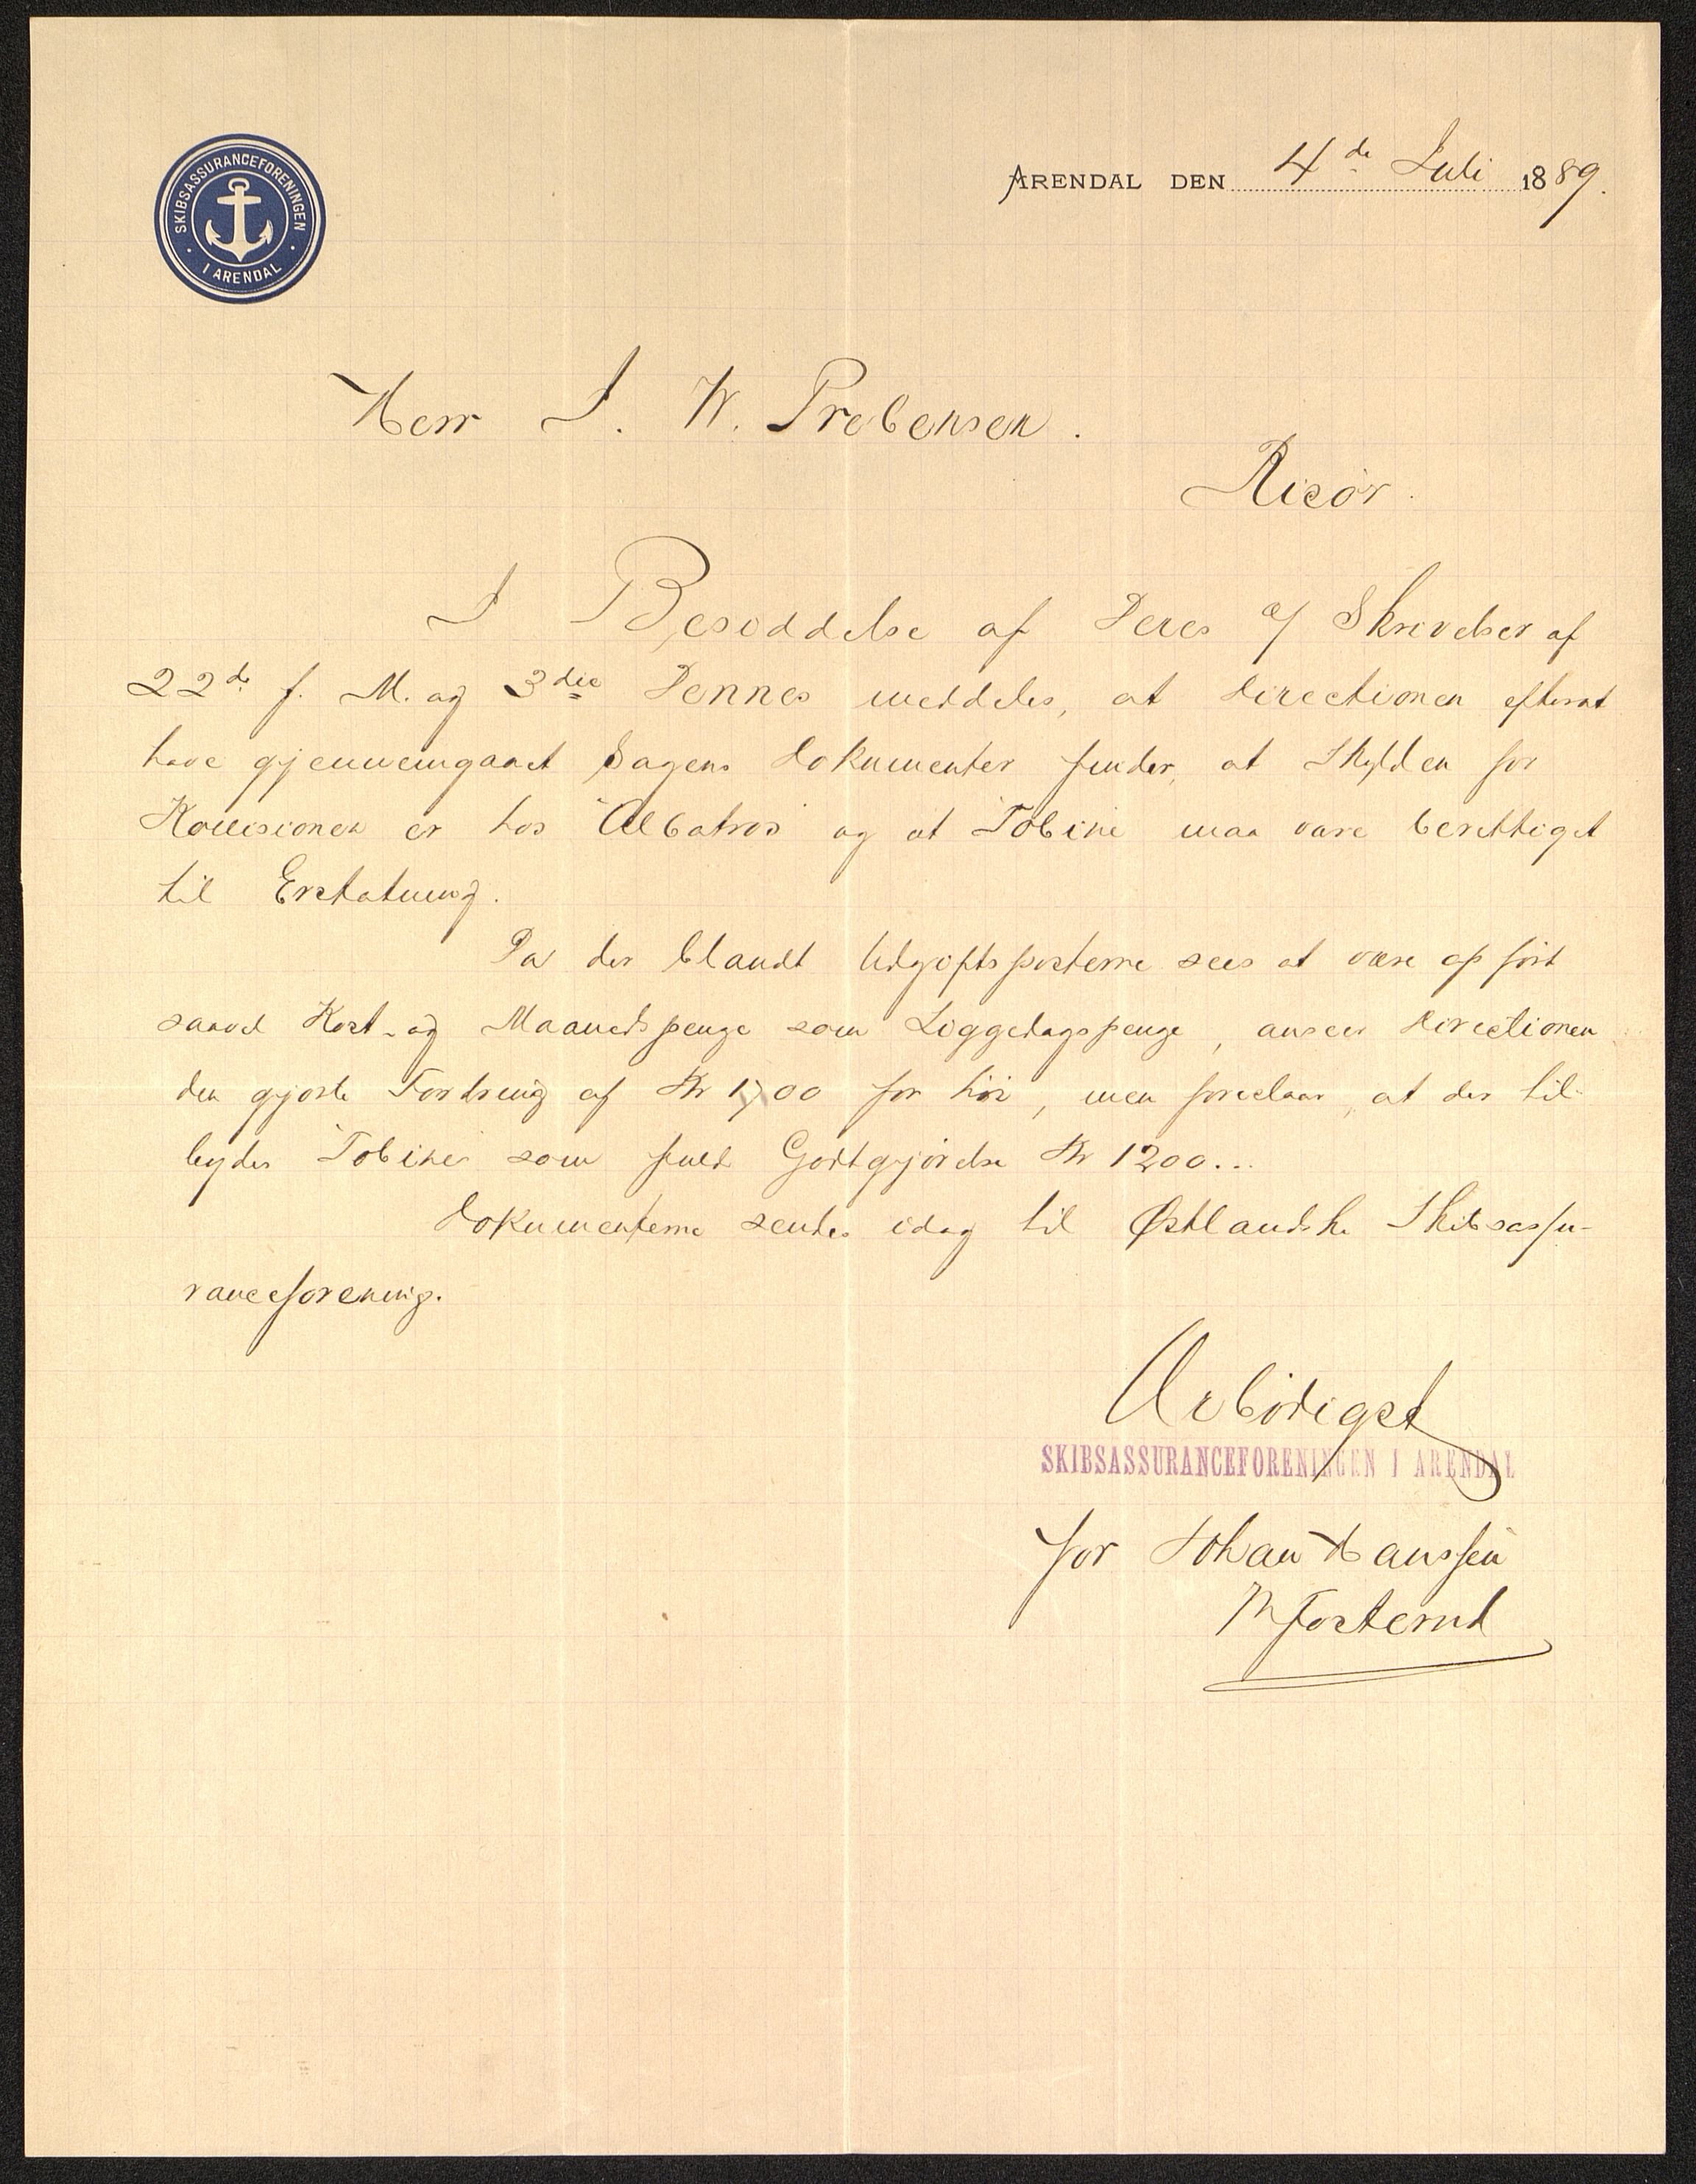 SKIBSASSURANCEFORENINGEN
I ARENDAL
ARENDAL DEN 4de Juli 1889.
Herr J. W. Prebensen.
Risør.
I Besiddelse af Deres æ/ Skrivelser af
22de f. M. og 3die Dennes meddeles, at Directionen efterat
have gjennemgaaet Sagens Dokumenter finder, at Skylden for
Kollisionen er hos "Albatros" og at "Tobine" maa være berettiget
til Erstatning.
Da der blandt Udgiftsposterne sees at være opført
saavel Kost- og Maanedspenge som Liggedagspenge, anseer Directionen
den gjorte Fordring af Kr 1700 for høi, men foreslaar, at der til-
bydes "Tobine" som fuld Godtgjørelse Kr 1200...
Dokumenterne sendes idag til Østlandske Skibsassu-
ranceforening.
Ærbødigst
SKIBSASSURANCEFORENINGEN I ARENDAL
for Johan Hanssen